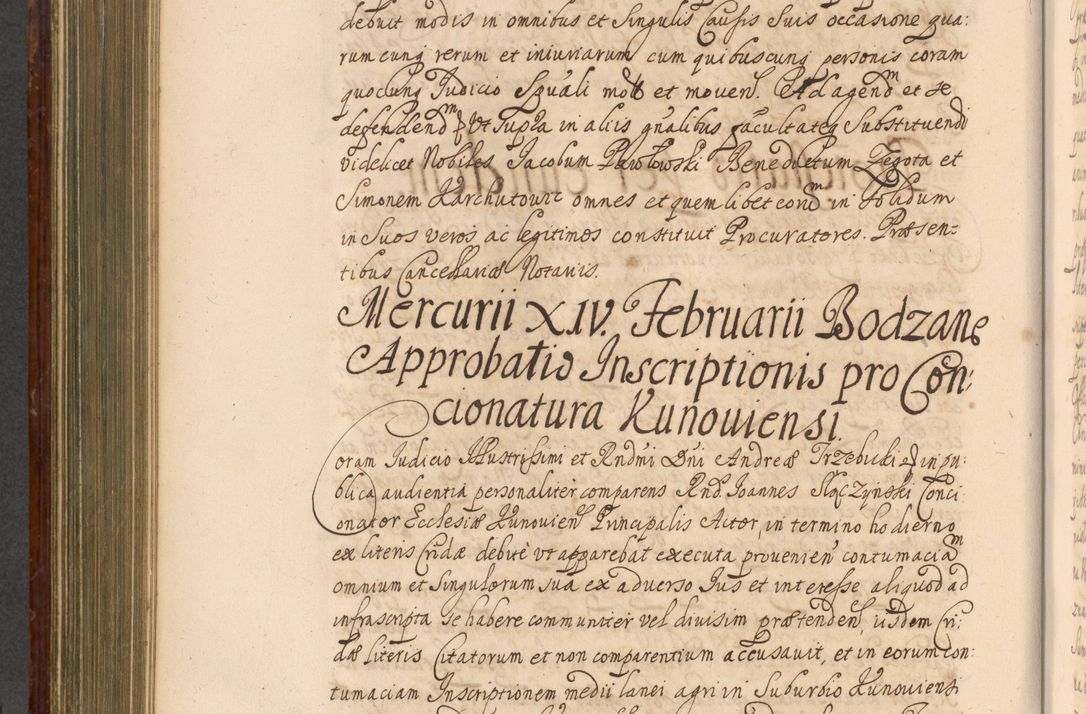 debuit modis in omnibus et Singulis Causis Suis occasione qua:
rum cunq rerum et iniuriarum cum quibuscunq personis coram
quocunq Judicio Spuali mot et moven. Ad agend et se
defendend Ut Supra in aliis gnalibus facultateq Substituendi
videlicet Nobiles Jacobum Pawłowski Benedictum Zegota et
Simonem Karchutowic omnes et quemlibet eond in Solidum
in Suos veros ac legitimos constituit Procuratores. Præsen:
tibus Cancellariæ Notariis.
Mercurii XIV. Februarii Bodzan
Approbatio Inscriptionis pro Con:
cionatura Kunoviensi.
Coram Judicio Illustrissimi et Rndmi Dni Andreæ Trzebicki in pu:
blica audientia personaliter comparens Rnd. Joannes Conci:
onator Ecclesiæ Kunovien Principalis Actor, in termino hodierno
ex literis Cridæ debite ut apparebat executa provenien contumacia
omnium et Singulorum sua ex adverso Jus et interesse aliquod ad
infrascripta se habere communiter vel divisim prætenden, iisdem Cri:
dæ literis Citatorum et non comparentium accusavit, et in eorum con:
tumaciam Inscriptionem medii lanei agri in Suburbio Kunoviens